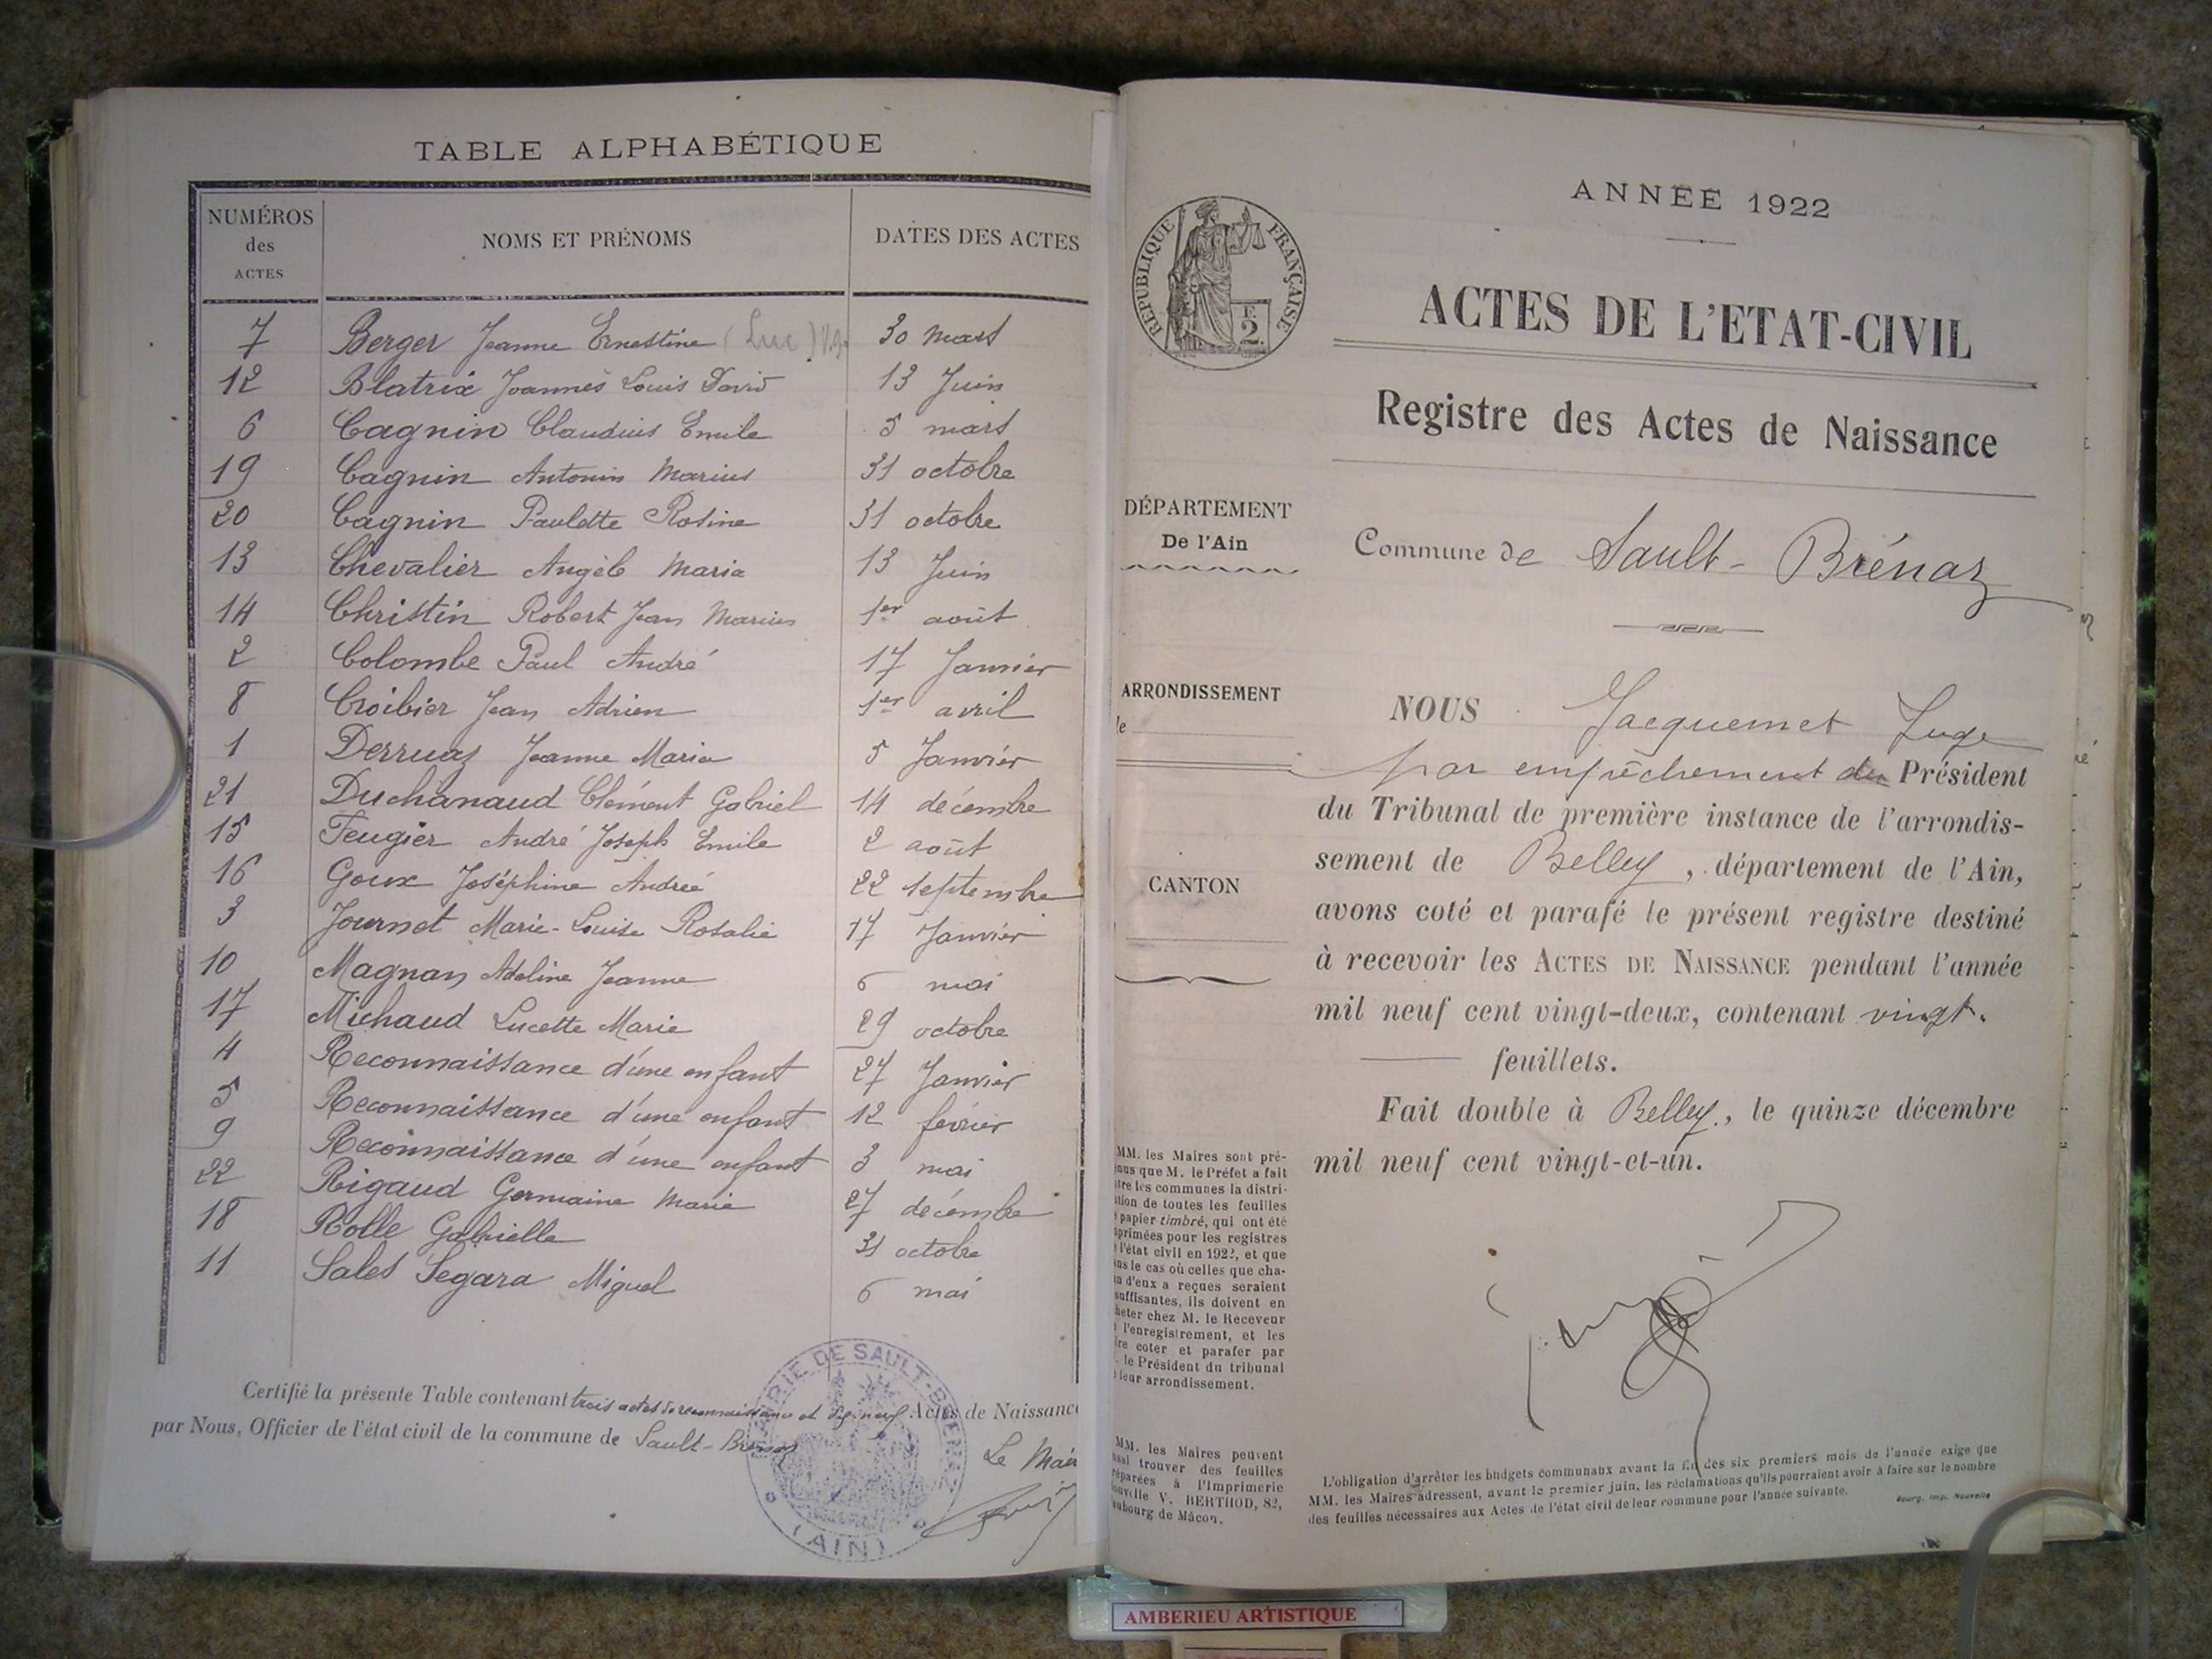 TABLE ALPHABÉTIQUE
NUMÉROS des ACTES
NOMS ET PRÉNOMS
DATES DES ACTES
7 Berger Jeanne Ernestine (Luc) 30 mars
12 Blatrix Joannès Louis David 13 Juin
6 Cagnin Claudius Emile 5 mars
19 Cagnin Antonin Marius 31 octobre
20 Cagnin Paulette Rosine 31 octobre
13 Chevalier Angèle Maria 13 Juin
14 Christin Robert Jean Marius 1er août
2 Colombe Paul André 17 Janvier
8 Croibier Jean Adrien 1er avril
1 Derruaz Jeanne Maria 5 Janvier
21 Duchanaud Clément Gabriel 14 décembre
15 Feugier André Joseph Emile 2 août
16 Goux Joséphine Andrée 22 septembre
3 Journet Marie-Louise Rosalie 17 Janvier
10 Magnan Adeline Jeanne 6 mai
17 Michaud Lucette Marie 29 octobre
4 Reconnaissance d'une enfant 27 Janvier
5 Reconnaissance d'une enfant 12 février
9 Reconnaissance d'une enfant 3 mai
22 Rigaud Germaine Marie 27 décembre
18 Rolle Gabrielle 31 octobre
11 Sales Segara Miguel 6 mai
Certifié la présente Table contenant trois actes de reconnaissance et dix-neuf Actes de Naissance
par Nous, Officier de l'état civil de la commune de Sault-Brénaz
Le Mair
MAIRIE DE SAULT-BRENAZ
(AIN)
ANNÉE 1922
RÉPUBLIQUE FRANÇAISE
2
ACTES DE L'ETAT-CIVIL
Registre des Actes de Naissance
DÉPARTEMENT
De l'Ain
Commune de Sault-Brénaz
ARRONDISSEMENT
CANTON
NOUS Jacquemet Juge
par empêchement du Président
du Tribunal de première instance de l'arrondis-
sement de Belley, département de l'Ain,
avons coté et parafé le présent registre destiné
à recevoir les ACTES DE NAISSANCE pendant l'année
mil neuf cent vingt-deux, contenant vingt.
feuillets.
Fait double à Belley, le quinze décembre
mil neuf cent vingt-et-un.
MM. les Maires sont pré-
nus que M. le Préfet a fait
tre les communes la distri-
tion de toutes les feuilles
papier timbré, qui ont été
primées pour les registres
l'état civil en 1922, et que
ns le cas où celles que cha-
n d'eux a reçues seraient
suffisantes, ils doivent en
heter chez M. le Receveur
l'enregistrement, et les
re coter et parafer par
le Président du tribunal
leur arrondissement.
MM. les Maires peuvent
ssi trouver des feuilles
réparées à l'Imprimerie
ouvelle V. BERTHOD, 82,
aubourg de Mâcon.
L'obligation d'arrêter les budgets communaux avant la fin des six premiers mois de l'année exige que
MM. les Maires adressent, avant le premier juin, les réclamations qu'ils pourraient avoir à faire sur le nombre
des feuilles nécessaires aux Actes de l'état civil de leur commune pour l'année suivante.
Bourg, Imp. Nouvelle
AMBERIEU ARTISTIQUE